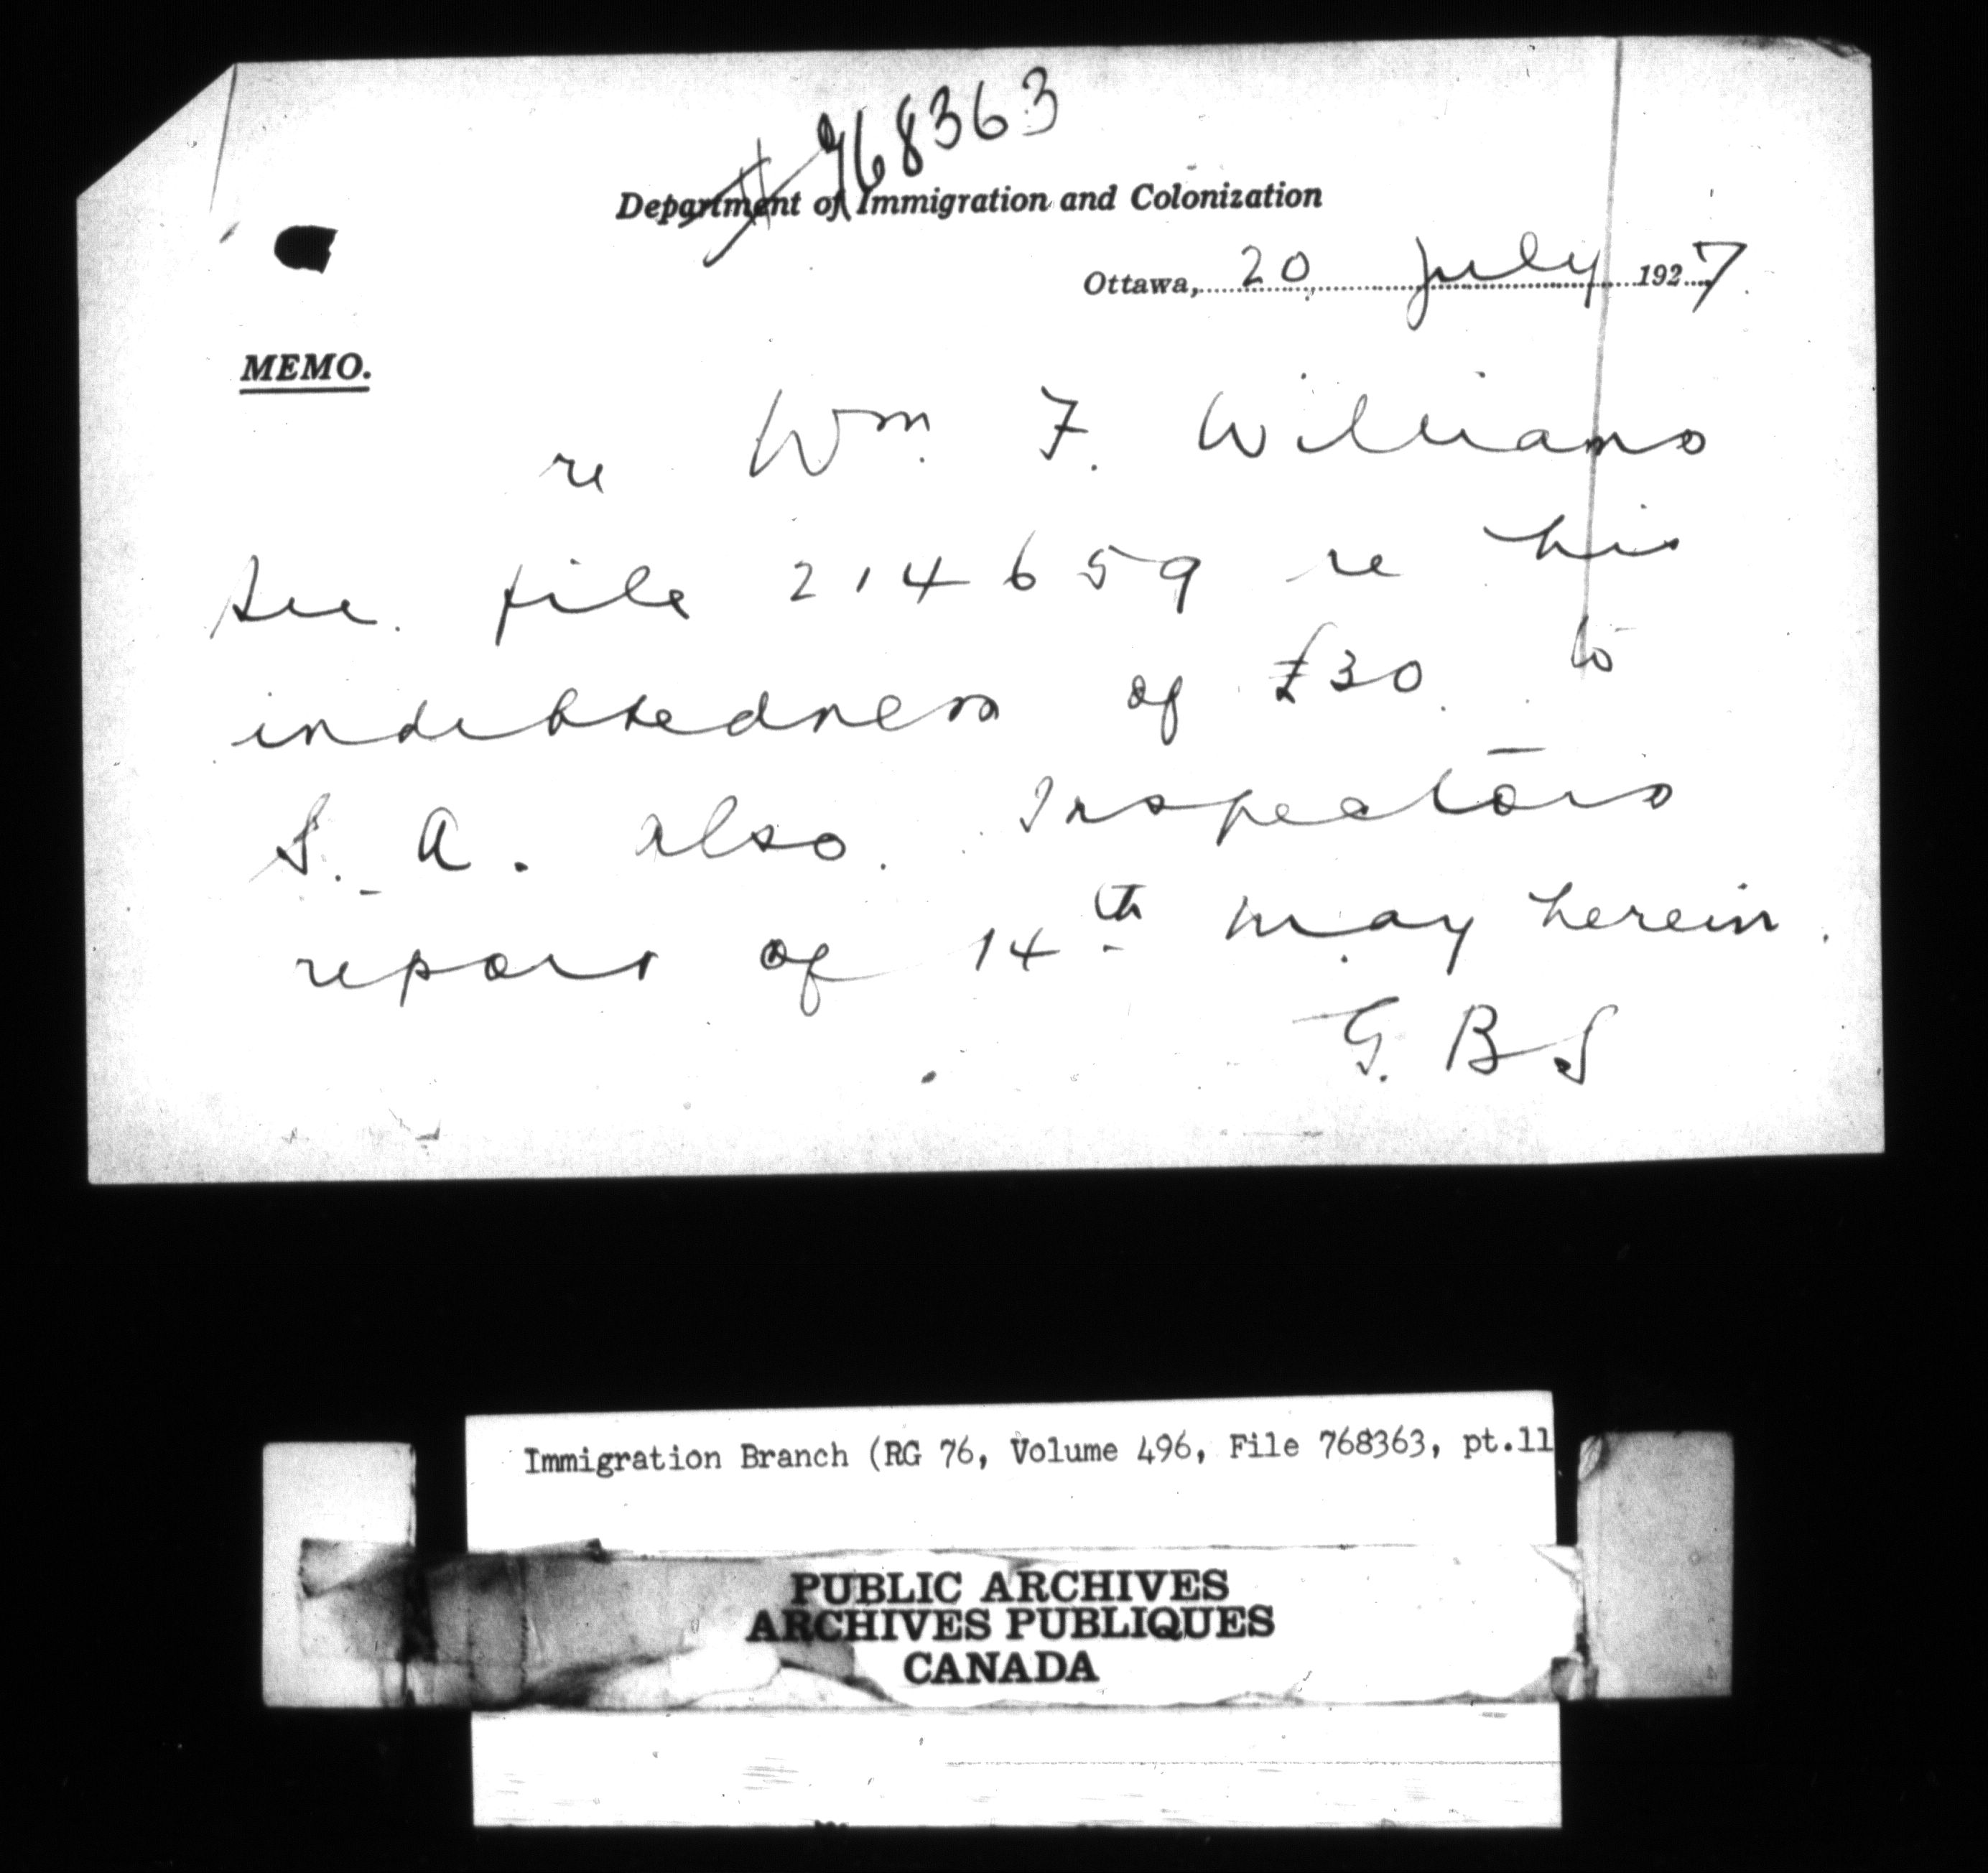 # 768363
Department of Immigration and Colonization
Ottawa, 20 July 1927
MEMO.
re Wm. F. Williams
See file 214659 re his
indebtedness of £30. to
S. A. also. Inspectors
report of 14th May herein.
G. B S
Immigration Branch (RG 76, Volume 496, File 768363, pt.11
PUBLIC ARCHIVES
ARCHIVES PUBLIQUES
CANADA